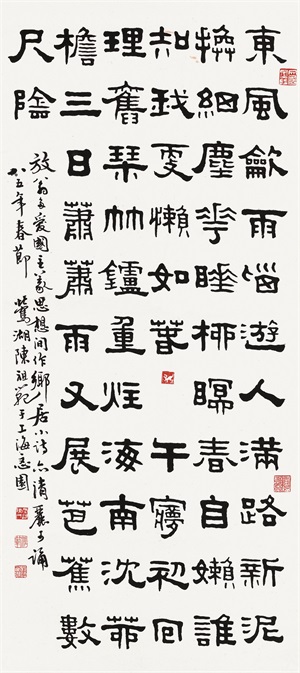 東風龡雨惱遊人滿路新泥
換細塵花睡桺瞑春自嬾誰
知我更懶如春午夢初回
理舊琴竹鑪重炷海南沈茆
檐三日蕭蕭雨又展芭蕉數
尺陰
放翁多愛國主義思想間作鄉居小詩亦清麗可誦
五年春節 鶯湖陳祖範于上海